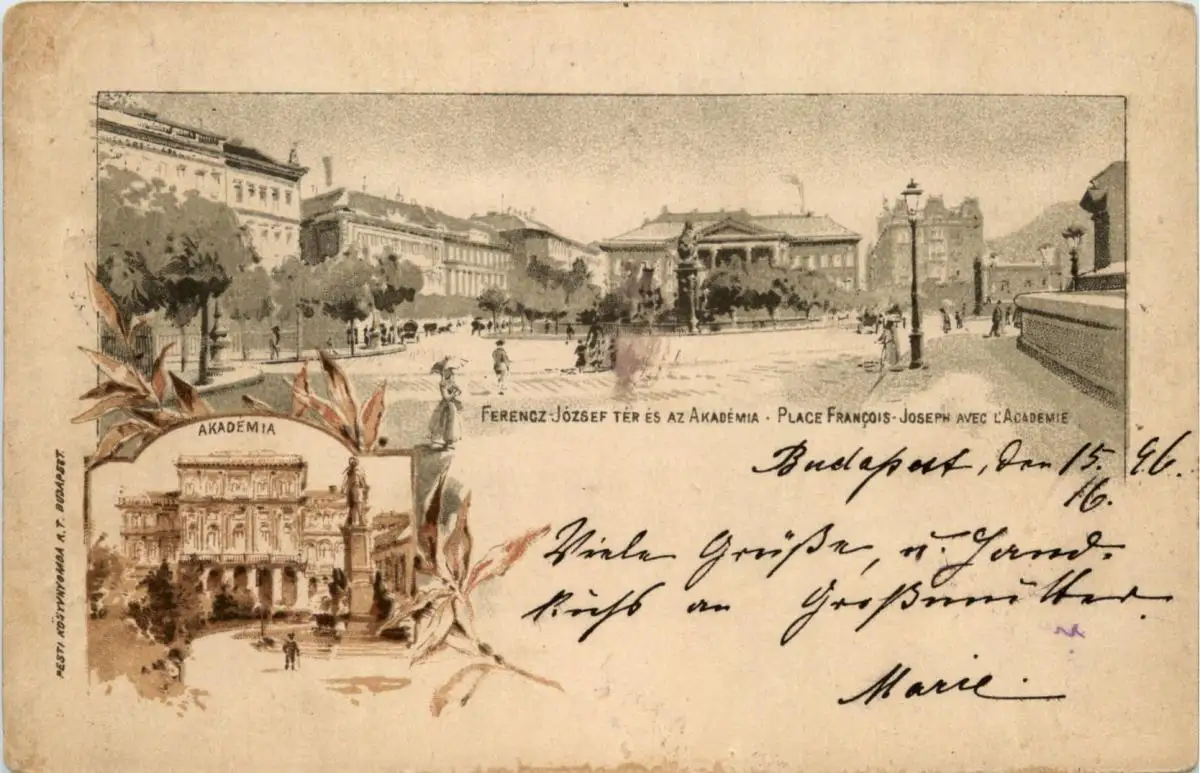 FERENCZ-JÓZSEF TÉR ÉS AZ AKADÉMIA · PLACE FRANÇOIS-JOSEPH AVEC L'ACADEMIE
AKADÉMIA
PESTI KÖNYVNYOMDA R.T. BUDAPEST.
Budapest, den 15. 96.
16.
Viele Grüße, u. Hand-
kuß an Großmutter.
Marie.